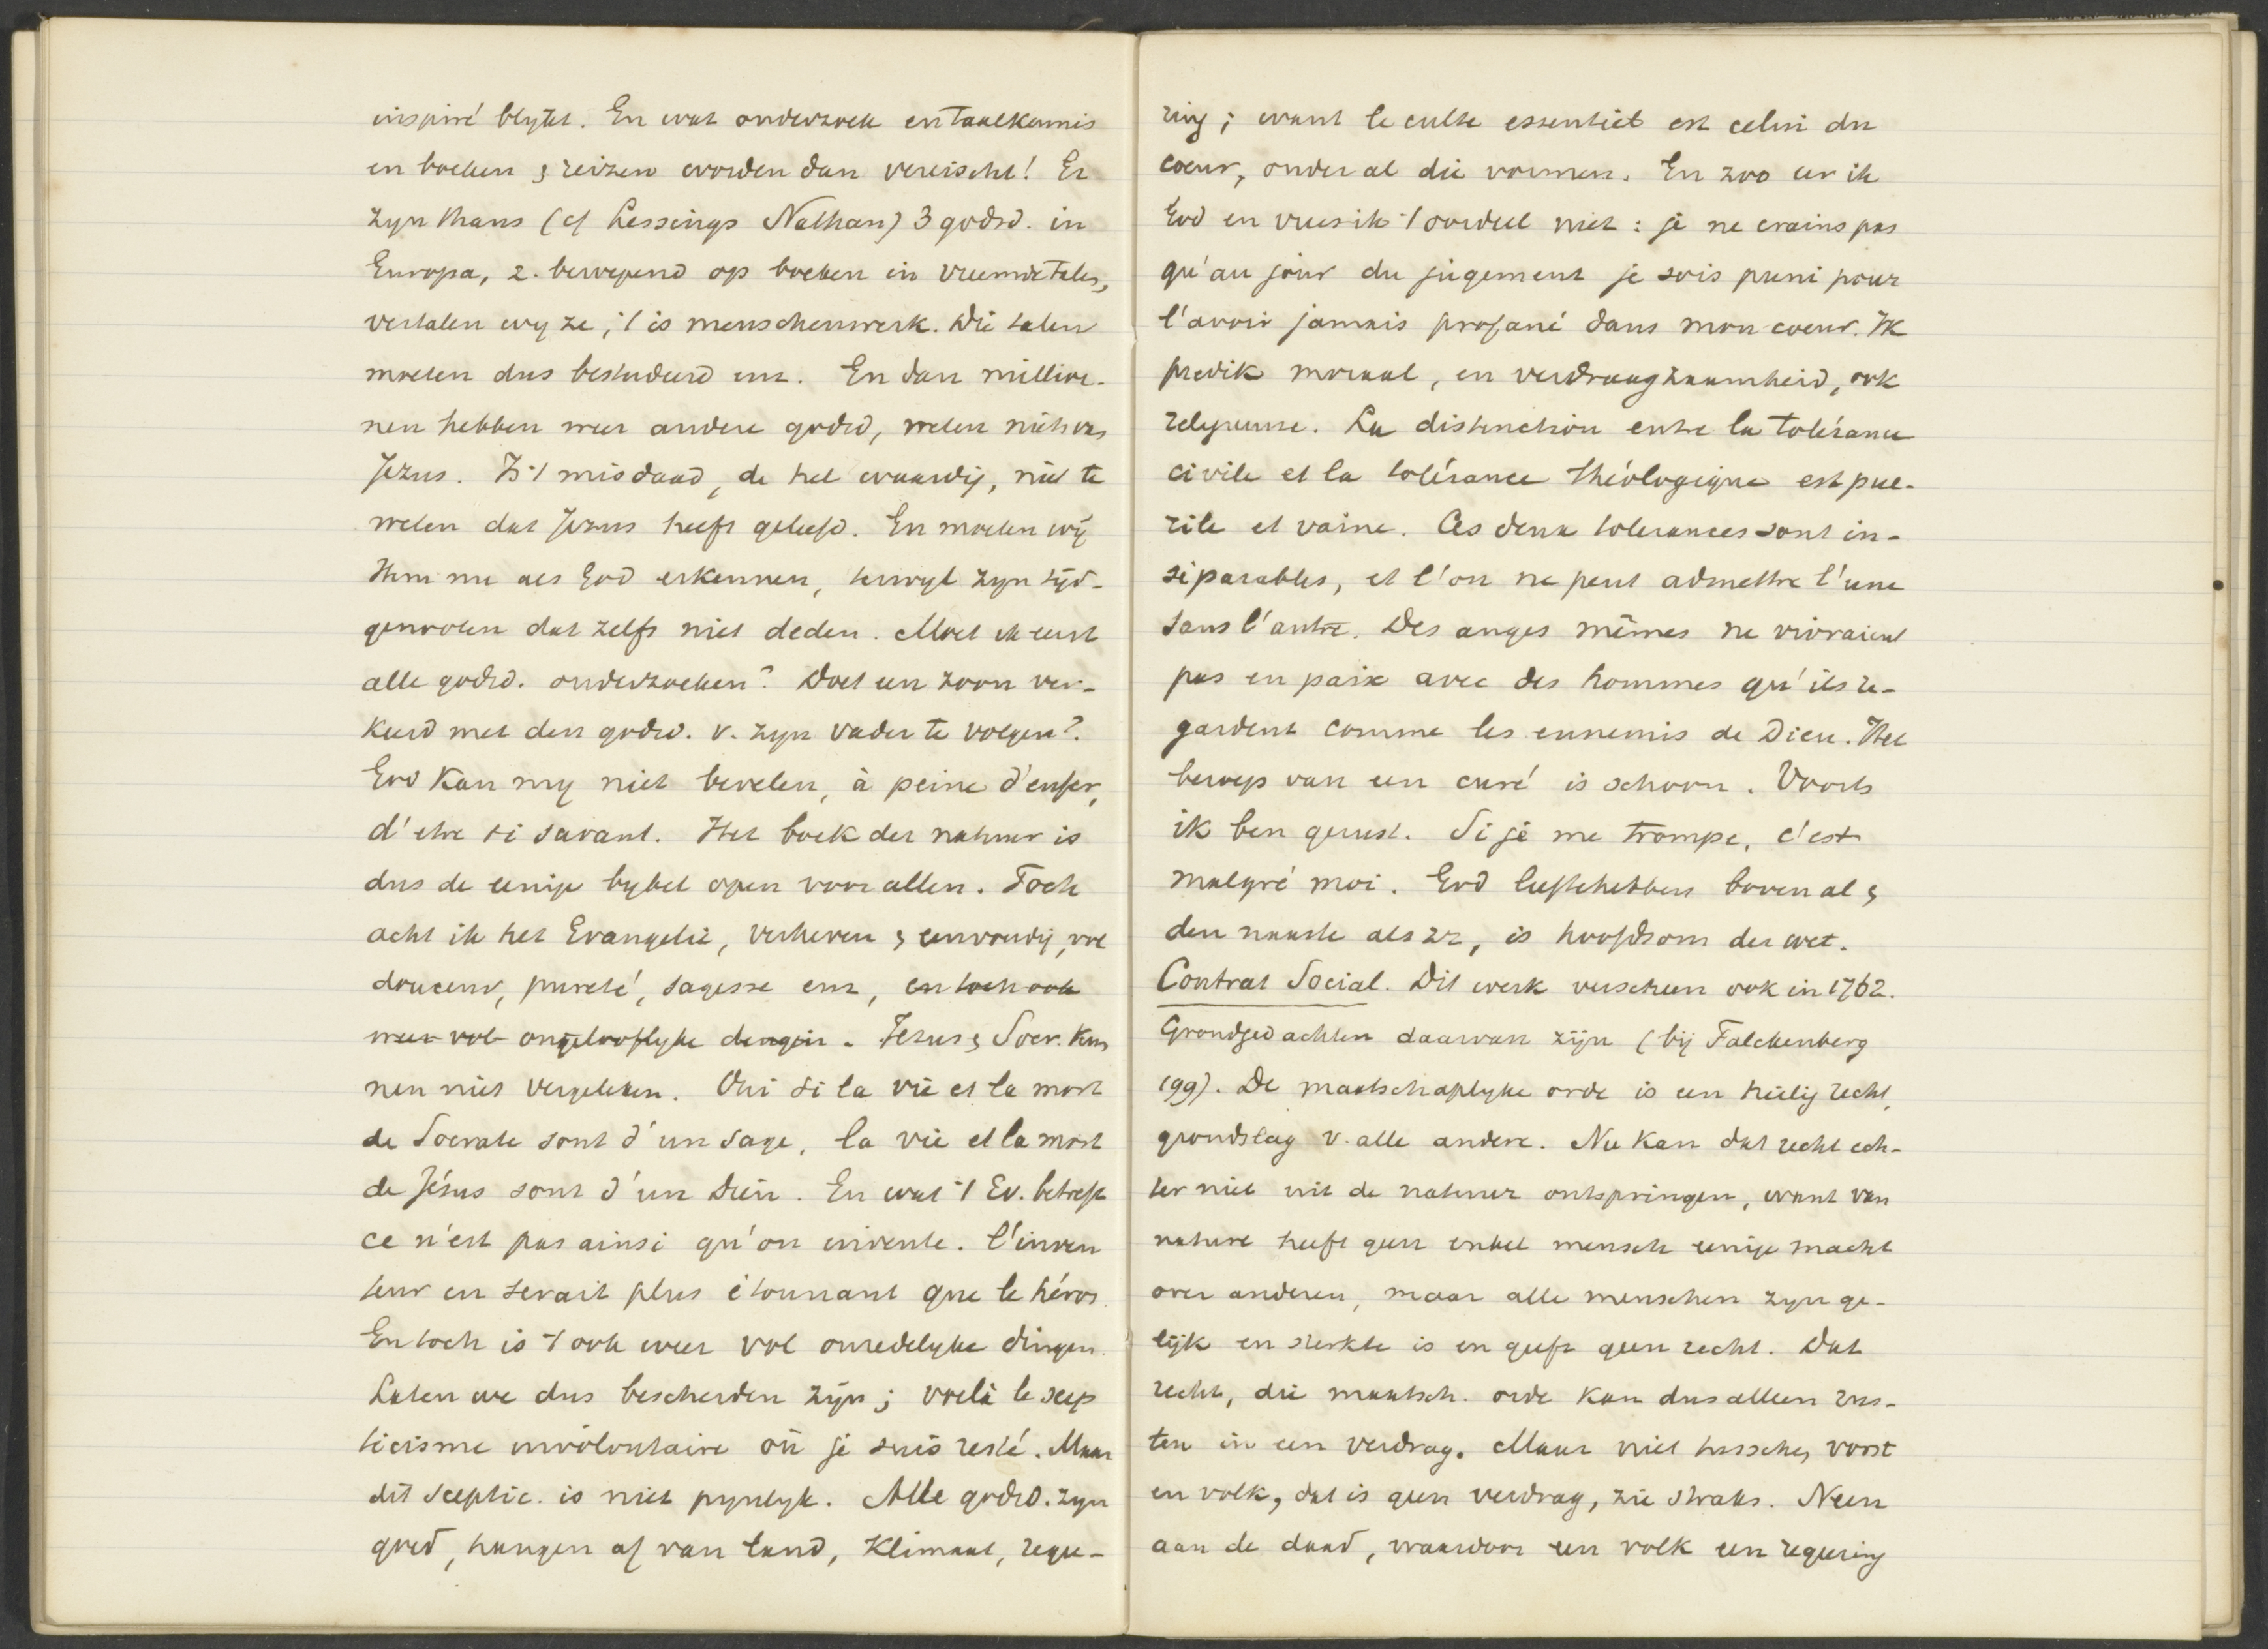 inspiré blijkt. En wat onderzoek en taalkennis
en boeken & reizen worden dan vereischt! Er
zyn thans (cf Lessings Nathan) 3 godsd. in
Europa, 2. beroepend op boeken in vreemde talen,
vertalen wy ze, 't is menschenwerk. Die talen
moeten dus bestudeerd enz. En dan millioe-
nen hebben weer andere godsd, weten niets van
Jezus. Is 't misdaad, de hel waardig, niet te
weten dat Jezus heeft geleefd. En moeten wij
Hem nu als God erkennen, terwyl zyn tijd-
genooten dat zelfs niet deden. Moet ik eerst
alle godsd. onderzoeken? Doet een zoon ver-
keerd met den godsd. v. zyn vader te volgen?
God kan my niet bevelen, à peine d'enfer,
d'etre si savant. Het boek der natuur is
dus de eenige bybel open voor allen. Toch
acht ik het Evangelie, verheven & eenvoudig, vol
douceur, pureté, sagesse enz, en toch ook
weer vol ongelooflyke dingen. Jezus & Socr. kun
nen niet vergeleken. Oui si la vie et la mort
de Socrate sont d'un sage, la vie et la mort
de Jésus sont d'un Dieu. En wat 't Ev. betreft
ce n'est pas ainsi qu'on invente. l'inven
teur en serait plus étonnant que le héros.
En toch is 't ook weer vol onredelyke dingen.
Laten we dus bescheiden zijn; voilà le scep
ticisme involontaire où je suis resté. Maar
dit sceptic. is niet pynlyk. Alle godsd. zyn
goed, hangen af van land, klimaat, regee-
ring; want le culte essentiel est celui du
coeur, onder al die vormen. En zoo eer ik
God en vrees ik 't oordeel niet: je ne crains pas
qu'au jour du jugement je sois puni pour
l'avoir jamais profané dans mon coeur. Ik
predik moraal, en verdraagzaamheid, ook
religieuse. La distinction entre la tolérance
civile et la tolérance théologique est pué-
rile et vaine. Ces deux tolerances sont in-
séparables, et l'on ne peut admettre l'une
sans l'autre. Des anges mêmes ne vivraient
pas en paix avec des hommes qu'ils re-
gardent comme les ennemis de Dieu. Het
beroep van een curé is schoon. Voorts
ik ben gerust. Si je me trompe, c'est
malgré moi. God liefhebben boven al &
den naaste als zz, is hoofdsom der wet.
Contrat Social. Dit werk verscheen ook in 1762.
Grondgedachten daarvan zijn (bij Falckenberg
199). De maatschaplyke orde is een heilig recht,
grondslag v. alle andere. Nu kan dat recht ech-
ter niet uit de natuur ontspringen, want van
nature heeft geen enkel mensch eenige macht
over anderen, maar alle menschen zyn ge-
lijk en sterkte is en geeft geen recht. Dat
recht, die maatsch. orde kan dus alleen rus-
ten in een verdrag. Maar niet tusschen vorst
en volk, dat is geen verdrag, zie straks. Neen
aan de daad, waardoor een volk een regeering